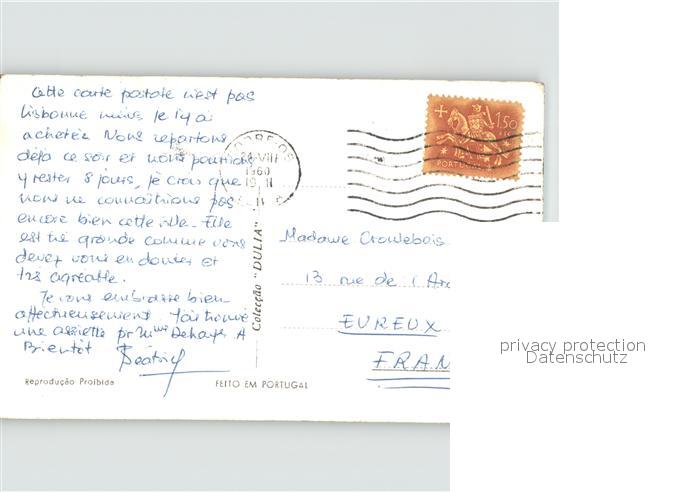 Cette carte postale n'est pas
Lisbonne mais je l'y ai
achetée. Nous repartons
déjà ce soir et nous pourrions
y rester 8 jours, je crois que
nous ne connaîtrions pas
encore bien cette ville. Elle
est très grande comme vous
devez vous en douter et
très agréable.
Je vous embrasse bien
affectueusement. J'ai trouvé
une assiette pr Mme Dehays A
Bientôt Béatrice
Reprodução Proibida
FEITO EM PORTUGAL
Colecção "DULIA"
CORREIOS
VIII
1960
1$50
PORTUGAL
Madame
13 rue de l'
EVREUX
FRAN
privacy protection
Datenschutz